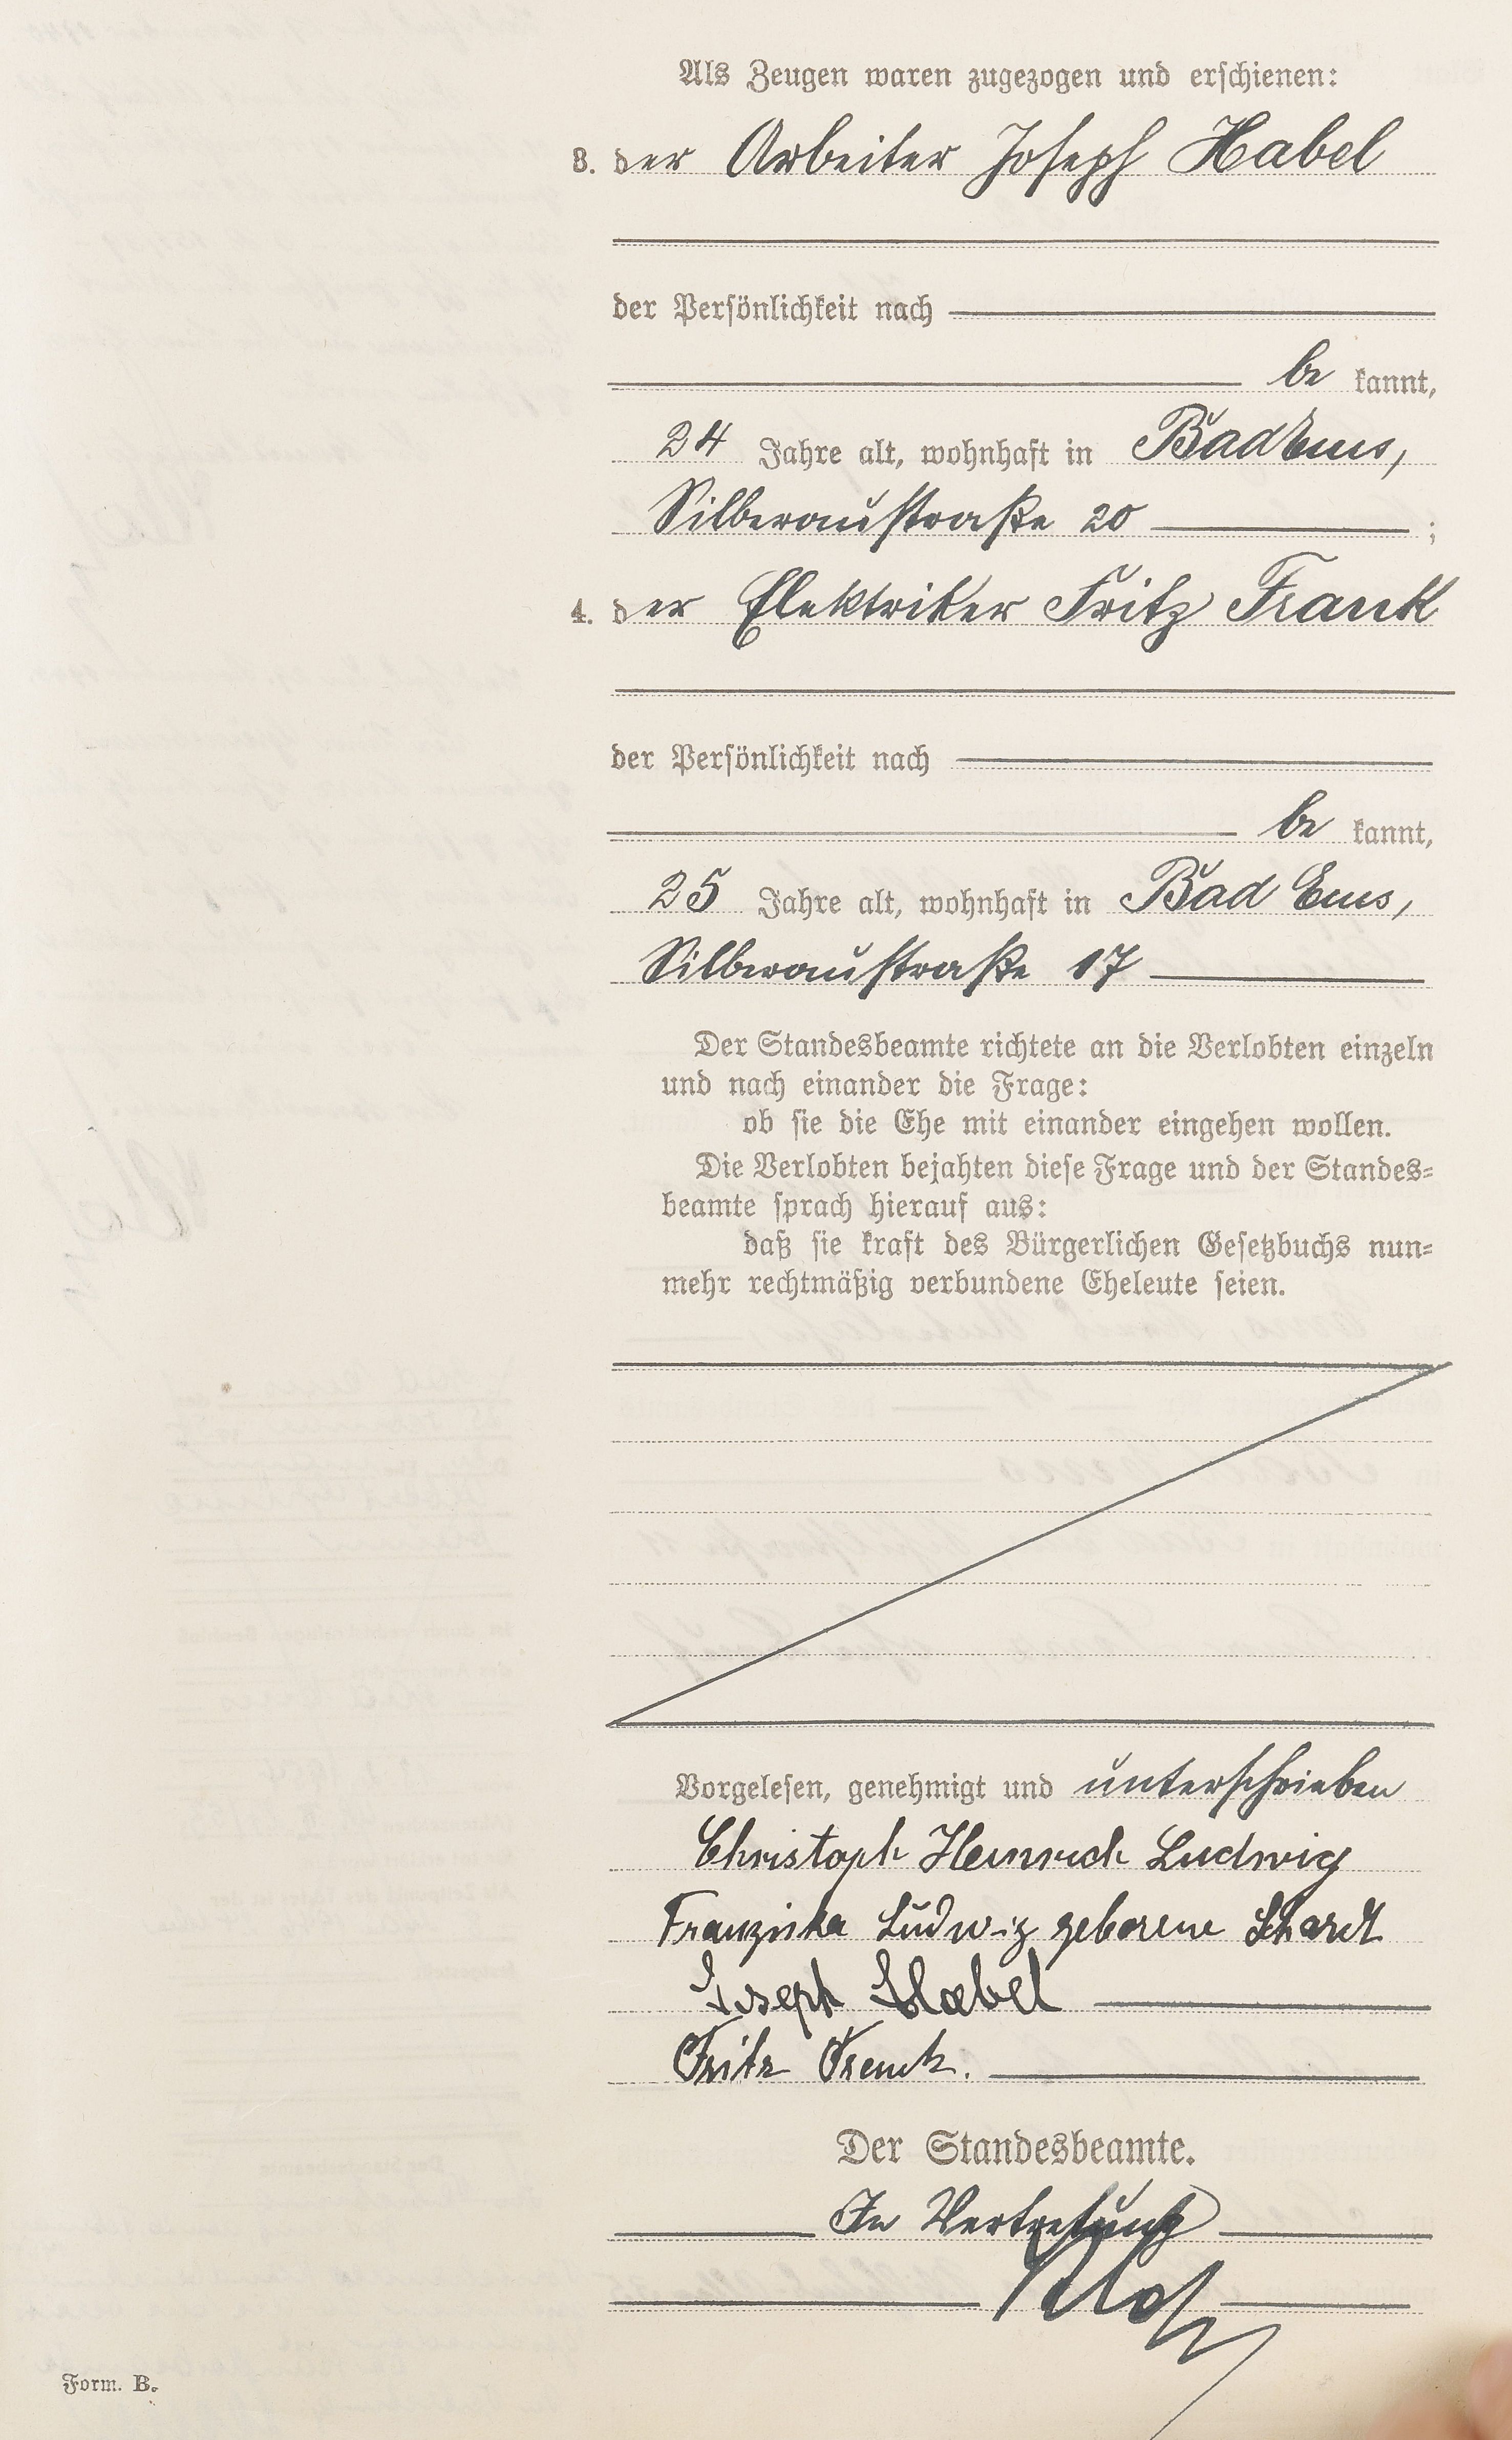 Als Zeugen waren zugezogen und erschienen:
3. der Arbeiter Joseph Habel
der Persönlichkeit nach
be kannt,
24 Jahre alt, wohnhaft in Bad Ems,
Silberaustraße 20 ;
4. der Elektriker Fritz Frank
der Persönlichkeit nach
be kannt,
25 Jahre alt, wohnhaft in Bad Ems,
Silberaustraße 17
Der Standesbeamte richtete an die Verlobten einzeln
und nach einander die Frage:
ob sie die Ehe mit einander eingehen wollen.
Die Verlobten bejahten diese Frage und der Standes-
beamte sprach hierauf aus:
daß sie kraft des Bürgerlichen Gesetzbuchs nun-
mehr rechtmäßig verbundene Eheleute seien.
Vorgelesen, genehmigt und unterschrieben
Christoph Heinrich Ludwig
Franziska Ludwig geborene Schardt
Joseph Habel
Fritz Frank.
Der Standesbeamte.
In Vertretung
Form. B.